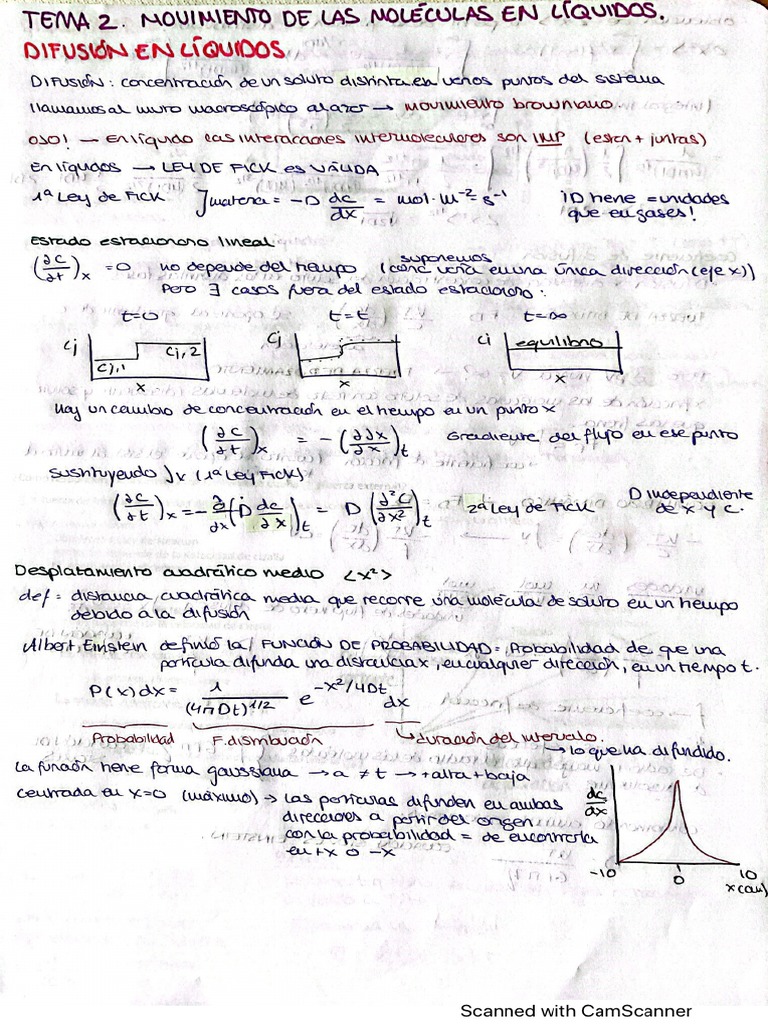 TEMA 2. MOVIMIENTO DE LAS MOLÉCULAS EN LÍQUIDOS.
DIFUSIÓN EN LÍQUIDOS
DIFUSIÓN: concentración de un soluto distinta en varios puntos del sistema
llamamos al muto macroscópico al azar → MOVIMIENTO browniano.
OJO! — En líquido las interacciones intermoleculares son IMP (están + juntas)
En líquidos → LEY DE FICK es VÁLIDA
1ª Ley de FICK J materia = -D dc/dx = mol·m⁻²·s⁻¹ ¡D tiene = unidades
que en gases!
Estado estacionario lineal
(∂c/∂t)x = 0 no depende del tiempo (suponemos conc varía en una única dirección (eje x))
Pero ∃ casos fuera del estado estacionario:
t=0 t=t t=∞
Cj Cj,1 Cj,2 Cj Ci equilibrio
x x x
Hay un cambio de concentración en el tiempo en un punto x
(∂c/∂t)x = -(∂Jx/∂x)t Gradiente del flujo en ese punto
sustituyendo Jx (1ª Ley FICK)
(∂c/∂t)x = -∂/∂x (D dc/∂x)t = D (∂²C/∂x²)t 2ª Ley de FICK D independiente
de x y c.
Desplatamiento cuadrático medio <x²>
def = distancia cuadrática media que recorre una molécula de soluto en un tiempo
debido a la difusión
Albert Einstein definió la FUNCIÓN DE PROBABILIDAD = Probabilidad de que una
partícula difunda una distancia x, en cualquier dirección, en un tiempo t.
P(x)dx = 1/(4πDt)^1/2 e^-x²/4Dt dx
Probabilidad F. distribución ↳ duración del intervalo.
→ lo que ha difundido.
La función tiene forma gaussiana → a ≠ t → + alta + baja
centrada en x=0 (máximo) → las partículas difunden en ambas
direcciones a partir del origen
con la probabilidad = de encontrarla
en +x o -x
dc/dx
-10 0 10
x(cm)
Scanned with CamScanner